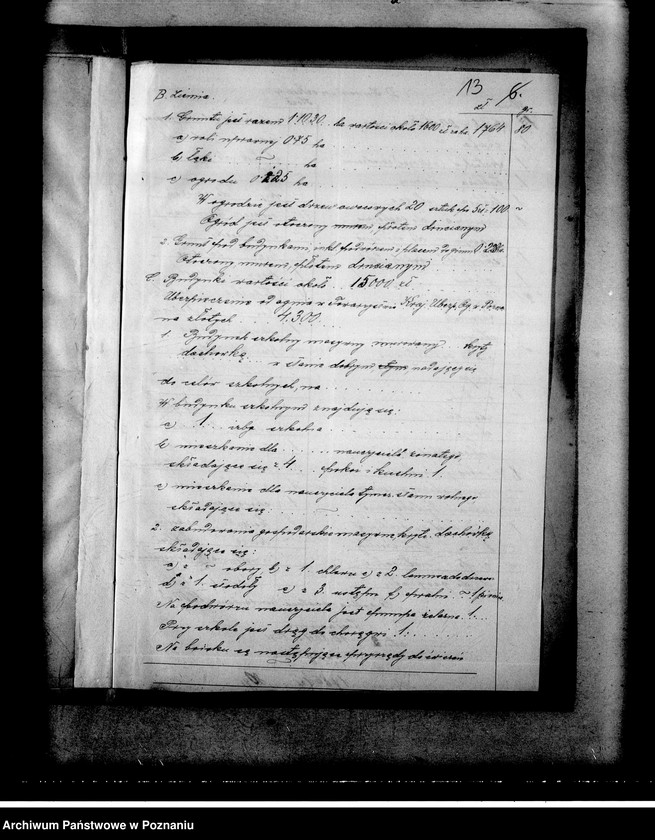 13 6.
B. Ziemia. zł gr.
1. Gruntu jest razem 1.1030 ha wartości około 1600 zł 1764 80
a) roli uprawnej 0 75 ha
b) łąki ~ ha
c) ogrodu 0 25 ha
W ogrodzie jest drzew owocowych 20 sztuk po 5 zł. 100 ~
Ogród jest otoczony murem, płotem drucianym
2. Grunt pod budynkami, inkl. podwórzem i placem
Otoczony murem, płotem drucianym
C. Budynki wartości około 15000 zł
Ubezpieczenie od ognia w Towarzystwie Kraj. Ubezp. Og. w
na złotych 4.300
1. Budynek szkolny masywny murowany kryty
dachówką w stanie dobrym nadający się
do celów szkolnych, na
W budynku szkolnym znajdują się:
a) 1 izba szkolna
b) mieszkanie dla nauczyciela żonatego
składające się z 4 pokoi i kuchni 1.
c) mieszkanie dla nauczyciela stanu wolnego
składające się: ~
2. zabudowania gospodarcze masywne kryte dachówką
składające się:
a) z ~ obory b) z 1. chlewu c) z 2.
d) z 1. stodoły e) z 3. ustępu f) pralni ~
Na podwórzu nauczyciela jest pompa żelazna 1.
Przy szkole jest drąg do chorągwi 1.
Na boisku są następujące przyrządy do ćwiczeń
Archiwum Państwowe w Poznaniu